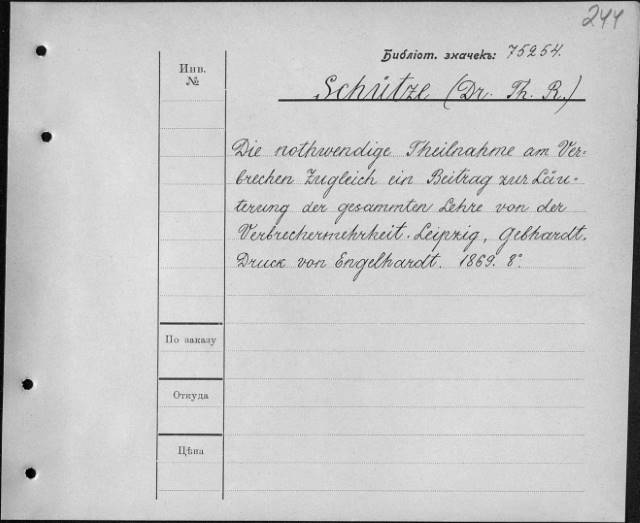 244
Библіот. значекъ: 75254.
Инв.
№
Schütze (Dr. Th. R.)
Die nothwendige Theilnahme am Ver=
brechen Zugleich ein Beitrag zur Läu=
terung der gesammten Lehre von der
Verbrechermehrheit. Leipzig, Gebhardt.
Druck von Engelhardt. 1869. 8°.
По заказу
Откуда
Цѣна